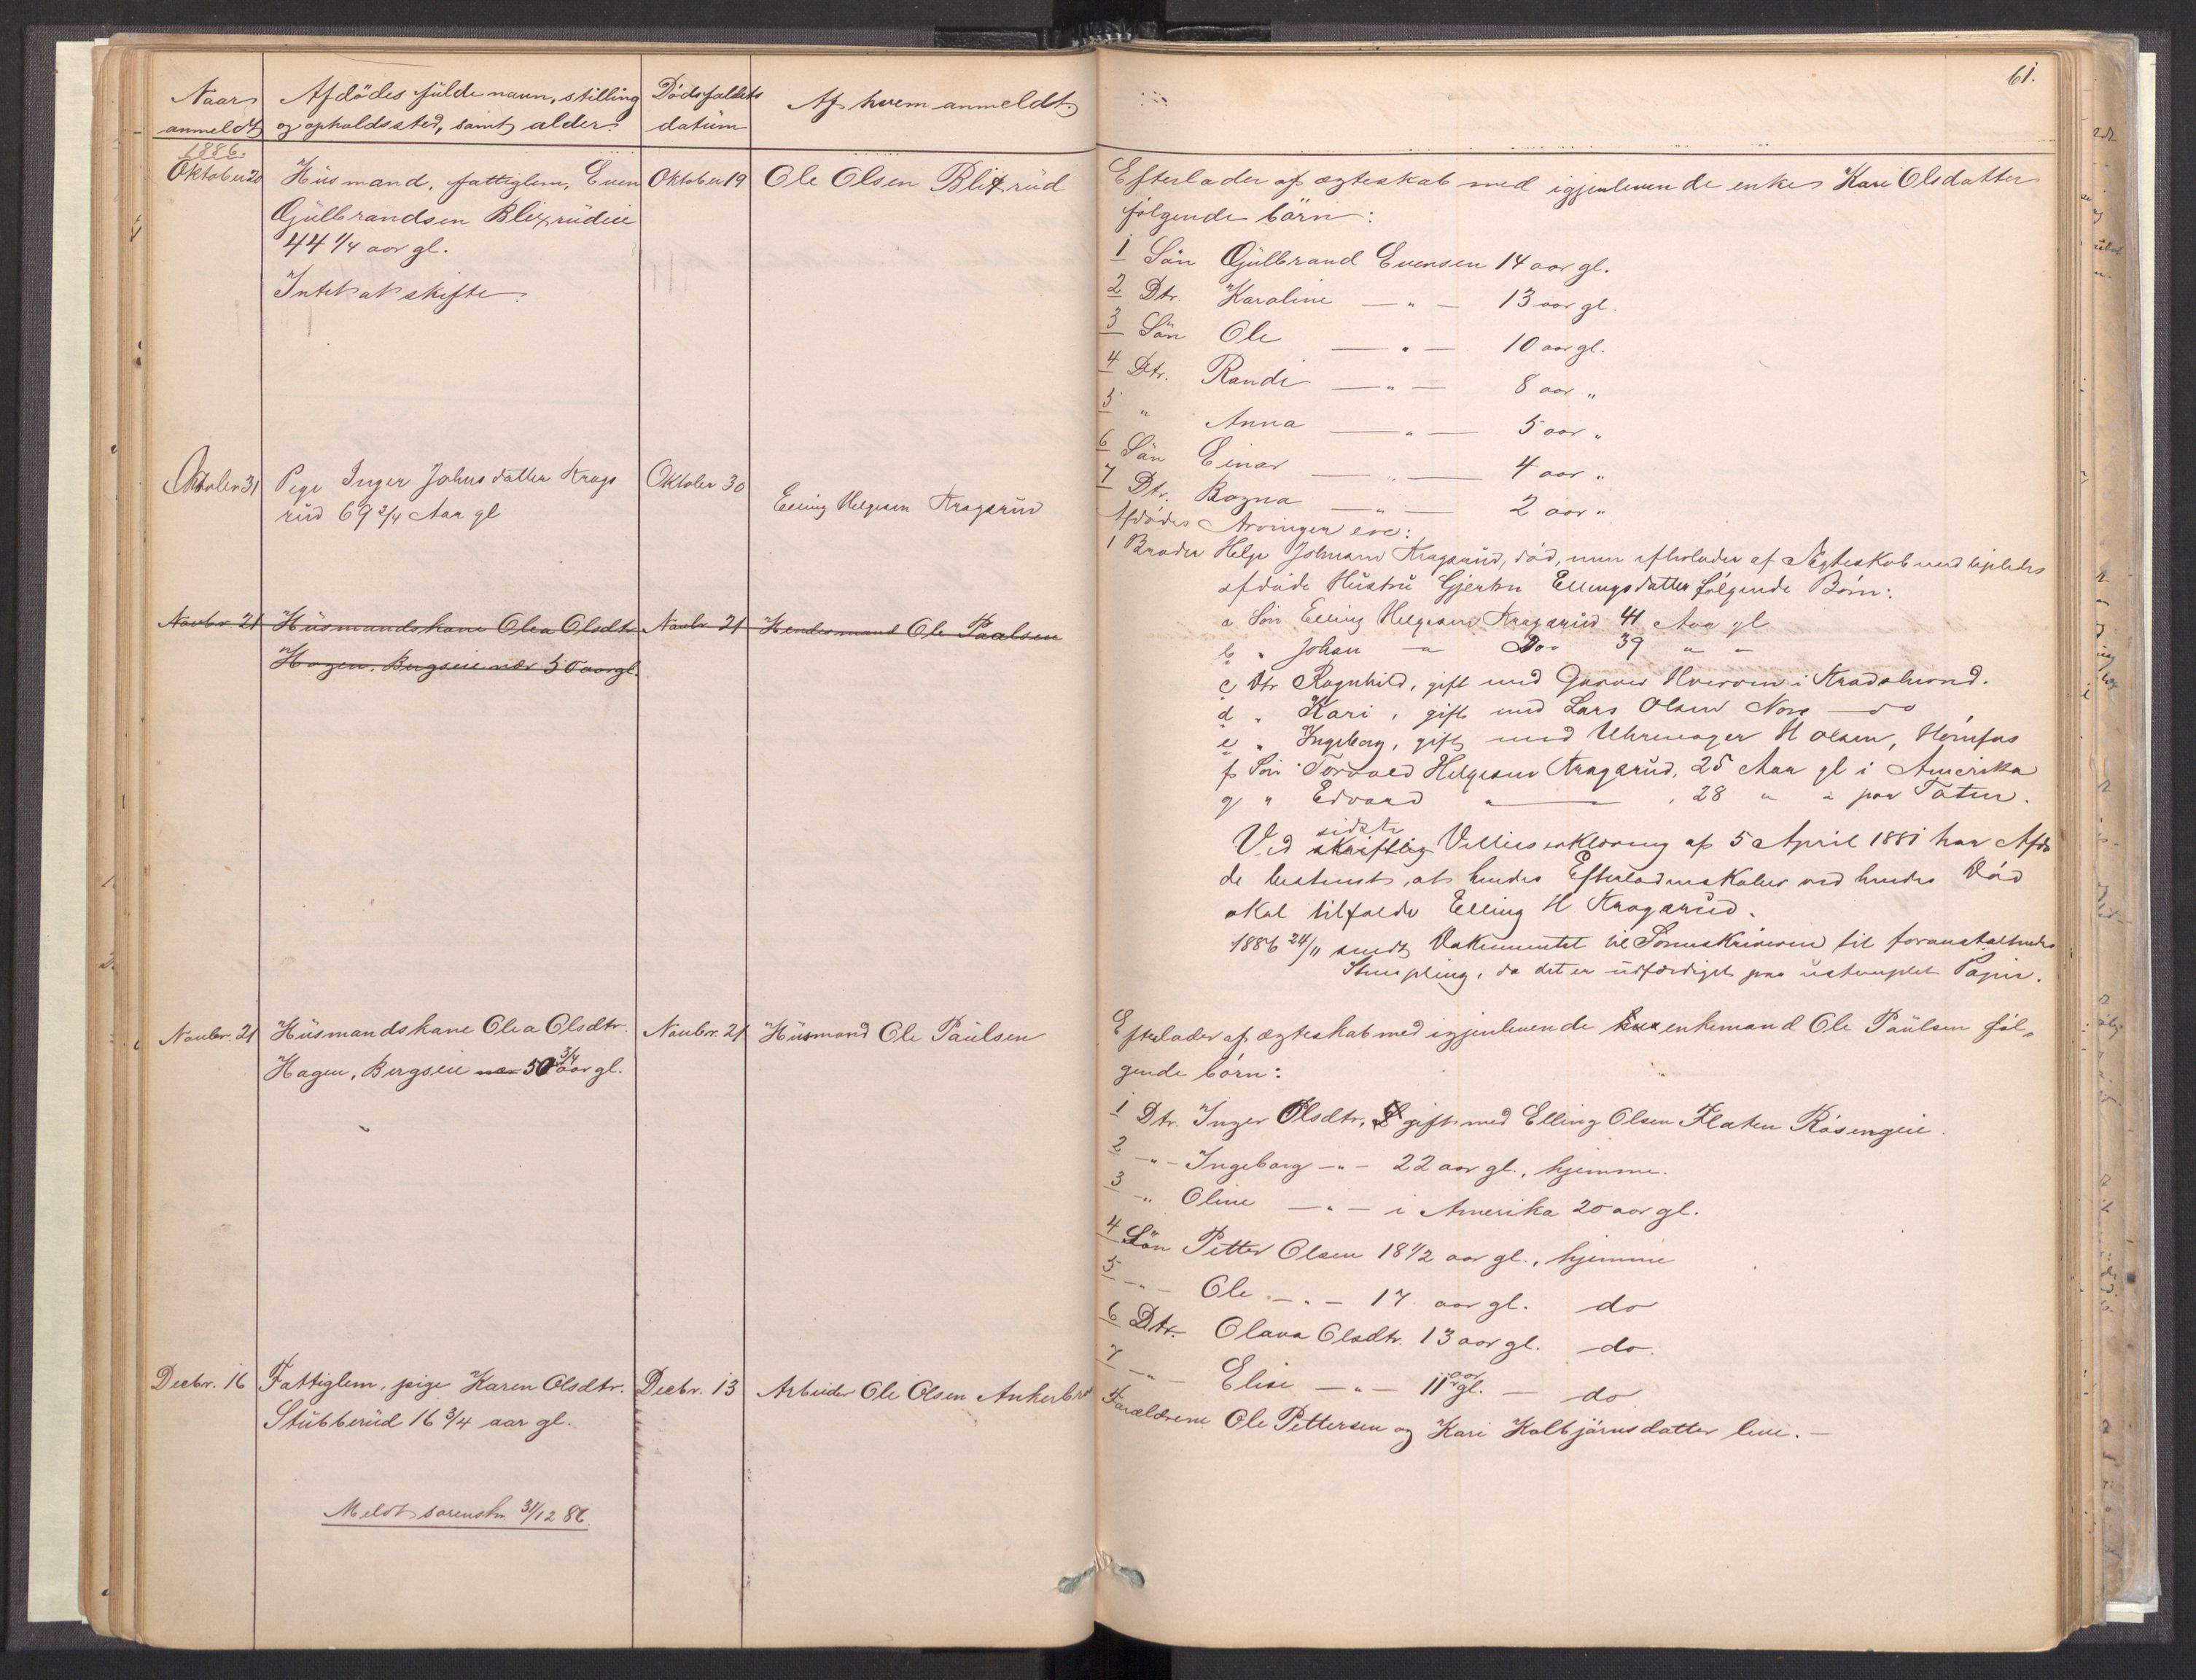 Naar
anmeldt
Afdödes fulde navn, stilling
og opholdssted, samt alder.
Dödsfaldets
datum
Af hvem anmeldt
1886
Oktober 20
Husmand, fattiglem, Even
Gulbrandsen Blixrudeie
44 1/4 aar gl.
Intet at skifte.
Oktober 19
Ole Olsen Blixrud
Oktober 31
Pige Inger Johnsdatter Krags
rud 69 3/4 Aar gl
Oktober 30
Elling Helgesen Kragsrud
Novbr 21
Husmandskone Olea Olsdtr
Hagen, Bergseie nær 50 aar gl.
Novbr 21
Hendes mand Ole Paalsen
Novbr. 21
Husmandskone Olea Olsdtr.
Hagen, Bergseie nær 50 3/4 aar gl.
Novbr. 21
Husmand Ole Paulsen
Decbr. 16
Fattiglem, pige Karen Olsdtr.
Stubberud 16 3/4 aar gl.
Decbr. 13
Arbeider Ole Olsen Ankerbråt
Meldt sorenskr. 31/12 86.
61.
Efterlader af ægteskab med igjenlevende enke Kari Olsdatter
følgende börn:
1 Sön Gulbrand Evensen 14 aar gl.
2 Dtr. Karoline — " — 13 aar gl.
3 Sön Ole — " — 10 aar gl.
4 Dtr. Randi — " — 8 aar "
5 " Anna — " — 5 aar "
6 Sön Einar — " — 4 aar "
7 Dtr. Ragna — " — 2 aar "
Afdødes Arvinger ere:
1 Broder Helge Johnsen Kragsrud, død, men efterlader af Ægteskab med ligeledes
afdøde Hustru Gjertru Ellingsdatter følgende Børn:
a Søn Elling Helgesen Kragsrud 41 Aar gl
b " Johan — " Do 39 " "
c Dtr Ragnhild, gift med Gunner Hverven i Kradsherad.
d " Kari, gift med Lars Olsen Nore — do
e " Ingeborg, gift med Uhrmager H Olsen, Hönefos
f Søn Torvald Helgesen Kragsrud, 25 Aar gl i Amerika
g " Edvard " — , 28 " " paa Toten.
Ved skriftlig sidste Villieserklæring af 5 April 1881 har Afdø
de bestemt, at hendes Efterladenskaber ved hendes Død
skal tilfalde Elling H Kragsrud.
1886 24/11 sendt Dokumentet til Sorenskriveren til foranstaltende
Stempling, da det er udfærdiget paa ustemplet Papir.
Efterlader af ægteskab med igjenlevende enkemand Ole Paulsen føl-
gende börn:
1 Dtr. Inger Olsdtr, gift med Elling Olsen Flaten Rösengeie.
2 — " — Ingeborg — " — 22 aar gl., hjemme.
3 — " Oline — " — i Amerika 20 aar gl.
4 Sön Petter Olsen 18 1/2 aar gl., hjemme
5 — " — Ole — " — 17 aar gl. do
6 Dtr. Olava Olsdtr. 13 aar gl. do.
7 — " — Elise — " — 11 aar gl. — do
Forældrene Ole Pettersen og Kari Kolbjörnsdatter leve. —